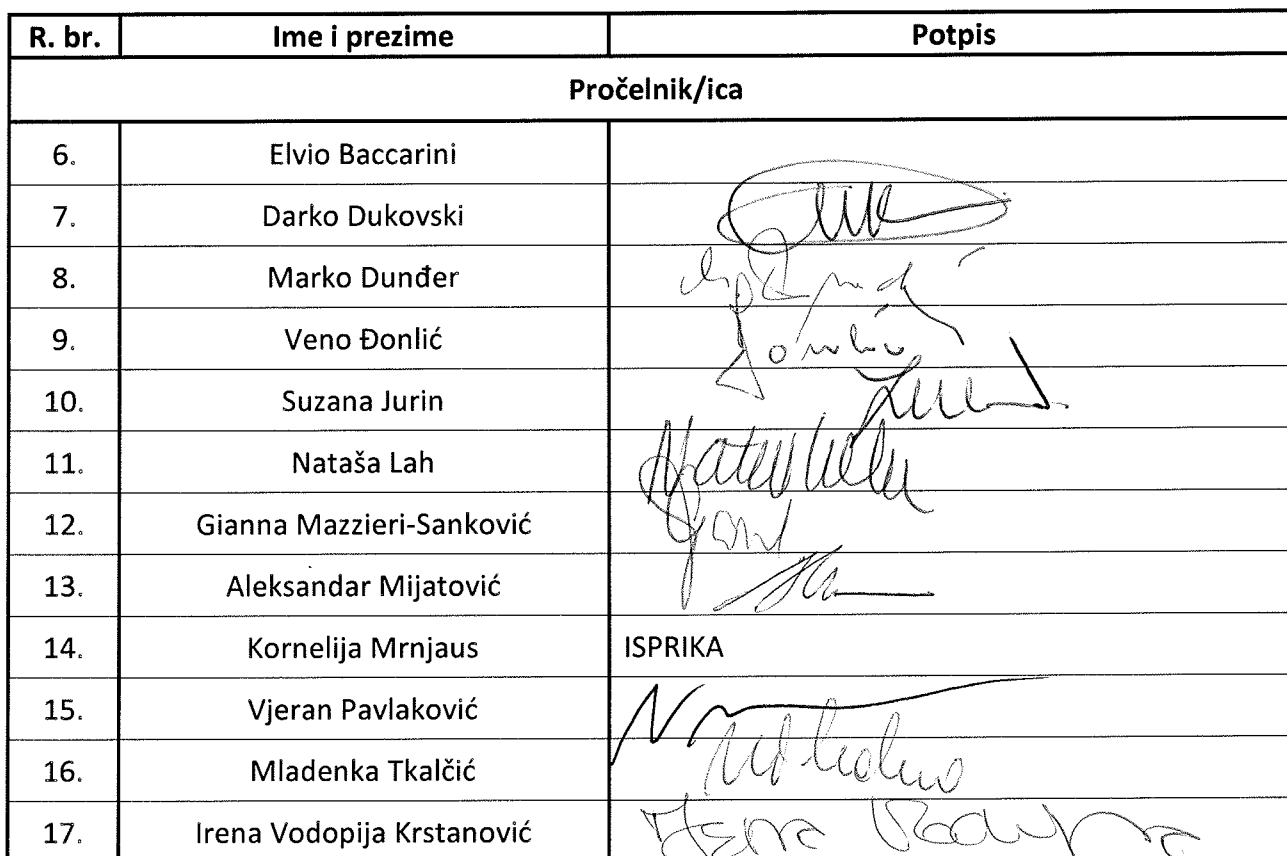 R. br. Ime i prezime Potpis
Pročelnik/ica
6. Elvio Baccarini
7. Darko Dukovski
8. Marko Dunđer
9. Veno Đonlić
10. Suzana Jurin
11. Nataša Lah
12. Gianna Mazzieri-Sanković
13. Aleksandar Mijatović
14. Kornelija Mrnjaus ISPRIKA
15. Vjeran Pavlaković
16. Mladenka Tkalčić
17. Irena Vodopija Krstanović